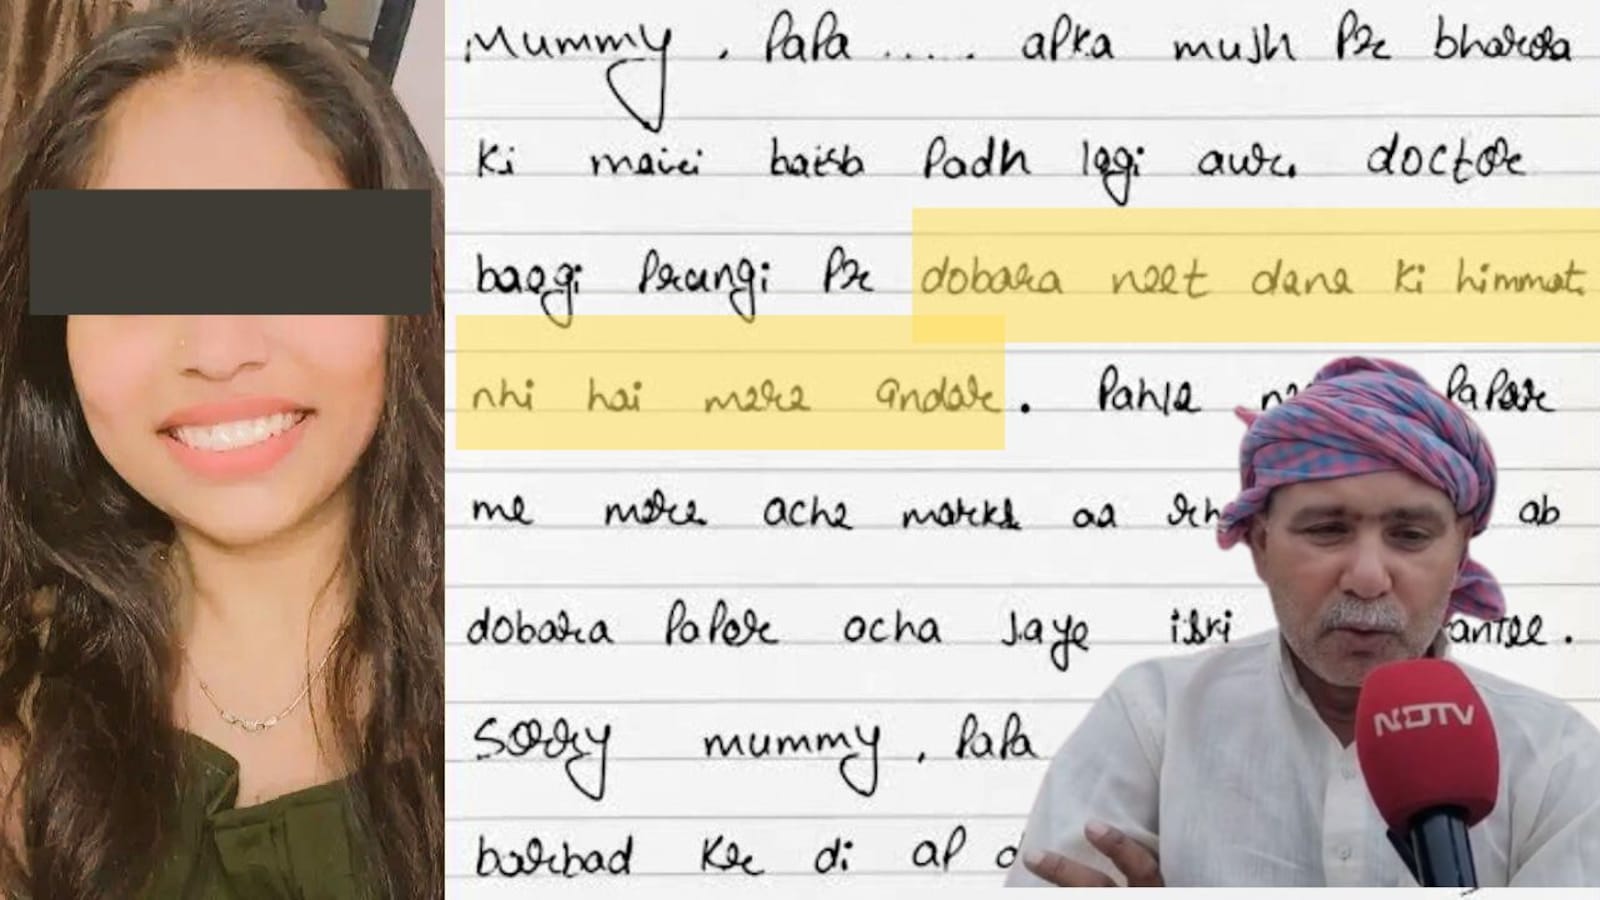 Mummy, PaPa ..... apka mujh Pr bharosa
Ki Padh aur. doctor
Pr dobara neet dene Ki himmat
nhi hai mere andar. Pahle Paper
me mere ache marks aa ab
dobara Paper acha Jaye iski
Sorry mummy, PaPa
barbad Kr di ap
NDTV